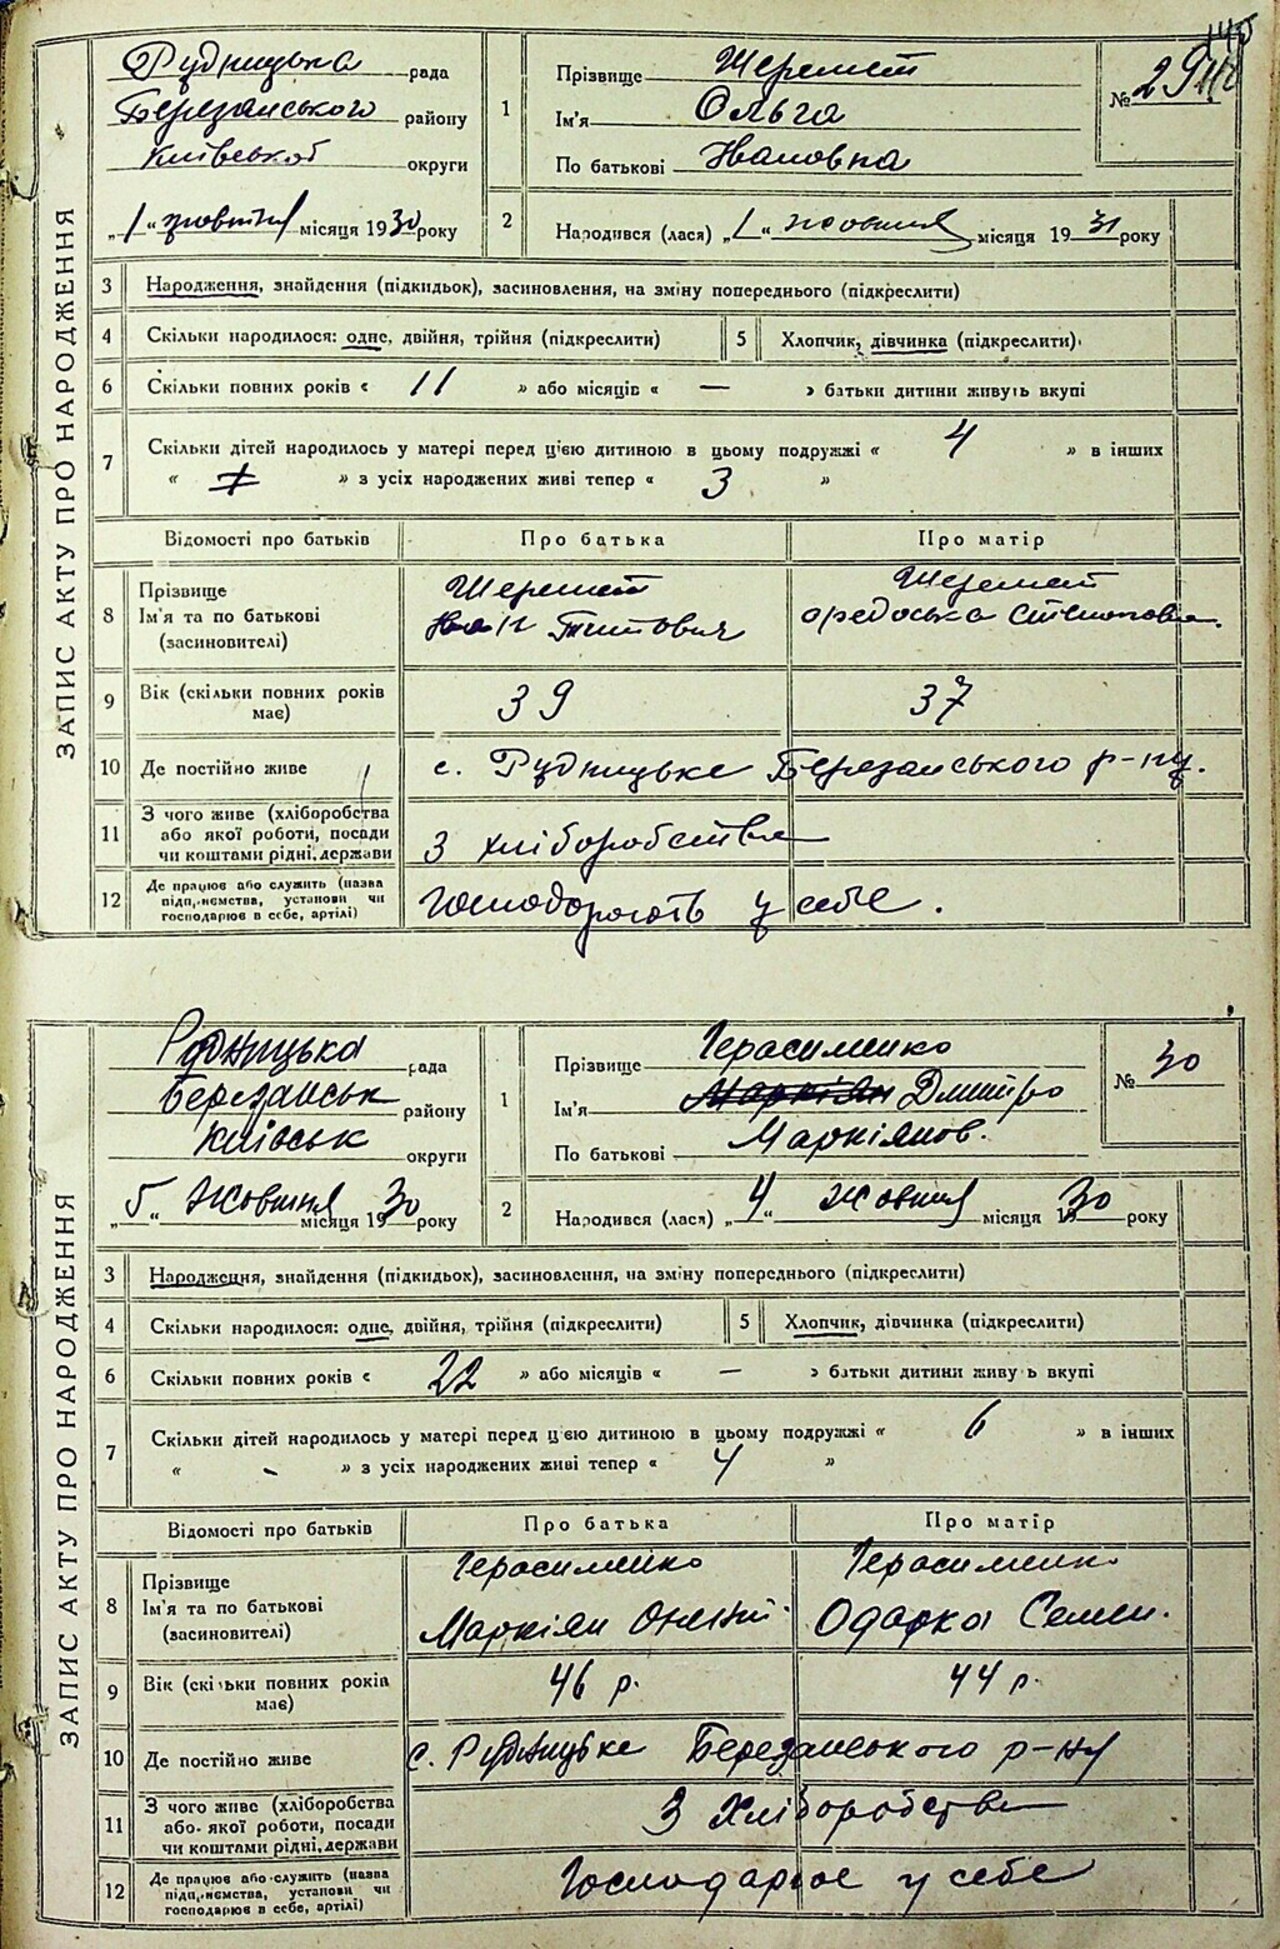 ЗАПИС АКТУ ПРО НАРОДЖЕННЯ
Рудницька рада
Березанського району
Київської округи
„1“ жовтня місяця 1930 року
1
Прізвище Шеремет
Ім'я Ольга
По батькові Ивановна
№ 29
2
Народився (лася) „1“ жовтня місяця 19 року
3 Народження, знайдення (підкидьок), засиновлення, на зміну попереднього (підкреслити)
4 Скільки народилося: одне, двійня, трійня (підкреслити) 5 Хлопчик, дівчинка (підкреслити)
6 Скільки повних років « 11 » або місяців « — » батьки дитини живуть вкупі
7 Скільки дітей народилось у матері перед цією дитиною в цьому подружжі « 4 » в інших
« » з усіх народжених живі тепер « 3 »
Відомості про батьків Про батька Про матір
8 Прізвище
Ім'я та по батькові
(засиновителі)
Шеремет
Титович
Шеремет
9 Вік (скільки повних років має) 39 37
10 Де постійно живе с. Рудницьке Березанського р-ну.
11 З чого живе (хліборобства
або якої роботи, посади
чи коштами рідні, держави
З хліборобства
12 Де працює або служить (назва
підприємства, установи чи
господарює в себе, артілі)
господорюють у себе.
ЗАПИС АКТУ ПРО НАРОДЖЕННЯ
Рудницька рада
Березанськ району
Київськ округи
„5“ Жовтня місяця 1930 року
1
Прізвище Герасименко
Ім'я Маркіян Дмитро
По батькові Маркіянов.
№ 30
2
Народився (лася) „4“ жовтня місяця 1930 року
3 Народження, знайдення (підкидьок), засиновлення, на зміну попереднього (підкреслити)
4 Скільки народилося: одне, двійня, трійня (підкреслити) 5 Хлопчик, дівчинка (підкреслити)
6 Скільки повних років « 22 » або місяців « — » батьки дитини живуть вкупі
7 Скільки дітей народилось у матері перед цією дитиною в цьому подружжі « 6 » в інших
« - » з усіх народжених живі тепер « 4 »
Відомості про батьків Про батька Про матір
8 Прізвище
Ім'я та по батькові
(засиновителі)
Герасименко
Маркіян
Герасименко
Одарка Семен.
9 Вік (скільки повних років має) 46 р. 44 р.
10 Де постійно живе с. Рудницьке Березанського р-ну
11 З чого живе (хліборобства
або якої роботи, посади
чи коштами рідні, держави
З Хліборобства
12 Де працює або служить (назва
підприємства, установи чи
господарює в себе, артілі)
Господарює у себе